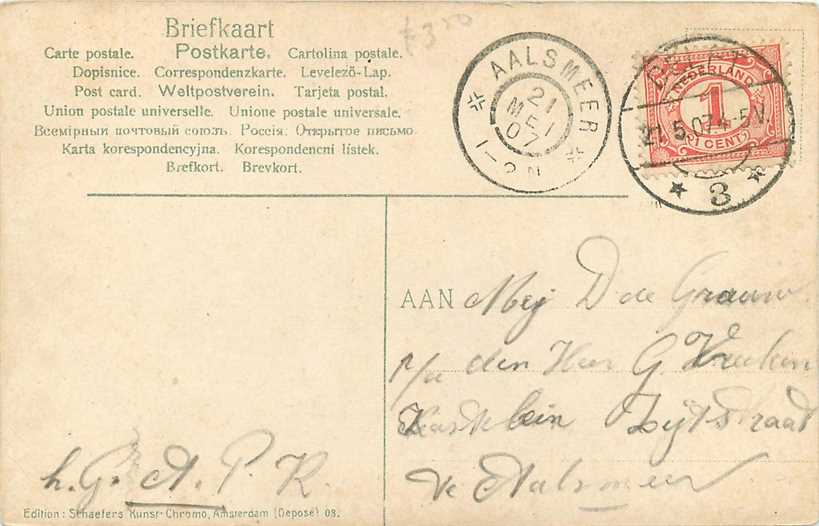 Briefkaart
Carte postale. Postkarte. Cartolina postale.
Dopisnice. Correspondenzkarte. Levelező-Lap.
Post card. Weltpostverein. Tarjeta postal.
Union postale universelle. Unione postale universale.
Всемірный почтовый союзъ. Россія. Открытое письмо.
Karta korespondencyjna. Korespondencní lístek.
Brefkort. Brevkort.
AALSMEER
21
MEI
07
1-2N
NEDERLAND
1
1 CENT
21.5.07 4-5V
3
AAN Mej D de Graauw
p/a den Heer G
Zijtstraat
te Aalsmeer
h. G. A. P. K.
Edition: Schaefers Kunst-Chromo, Amsterdam (Deposé) 08.